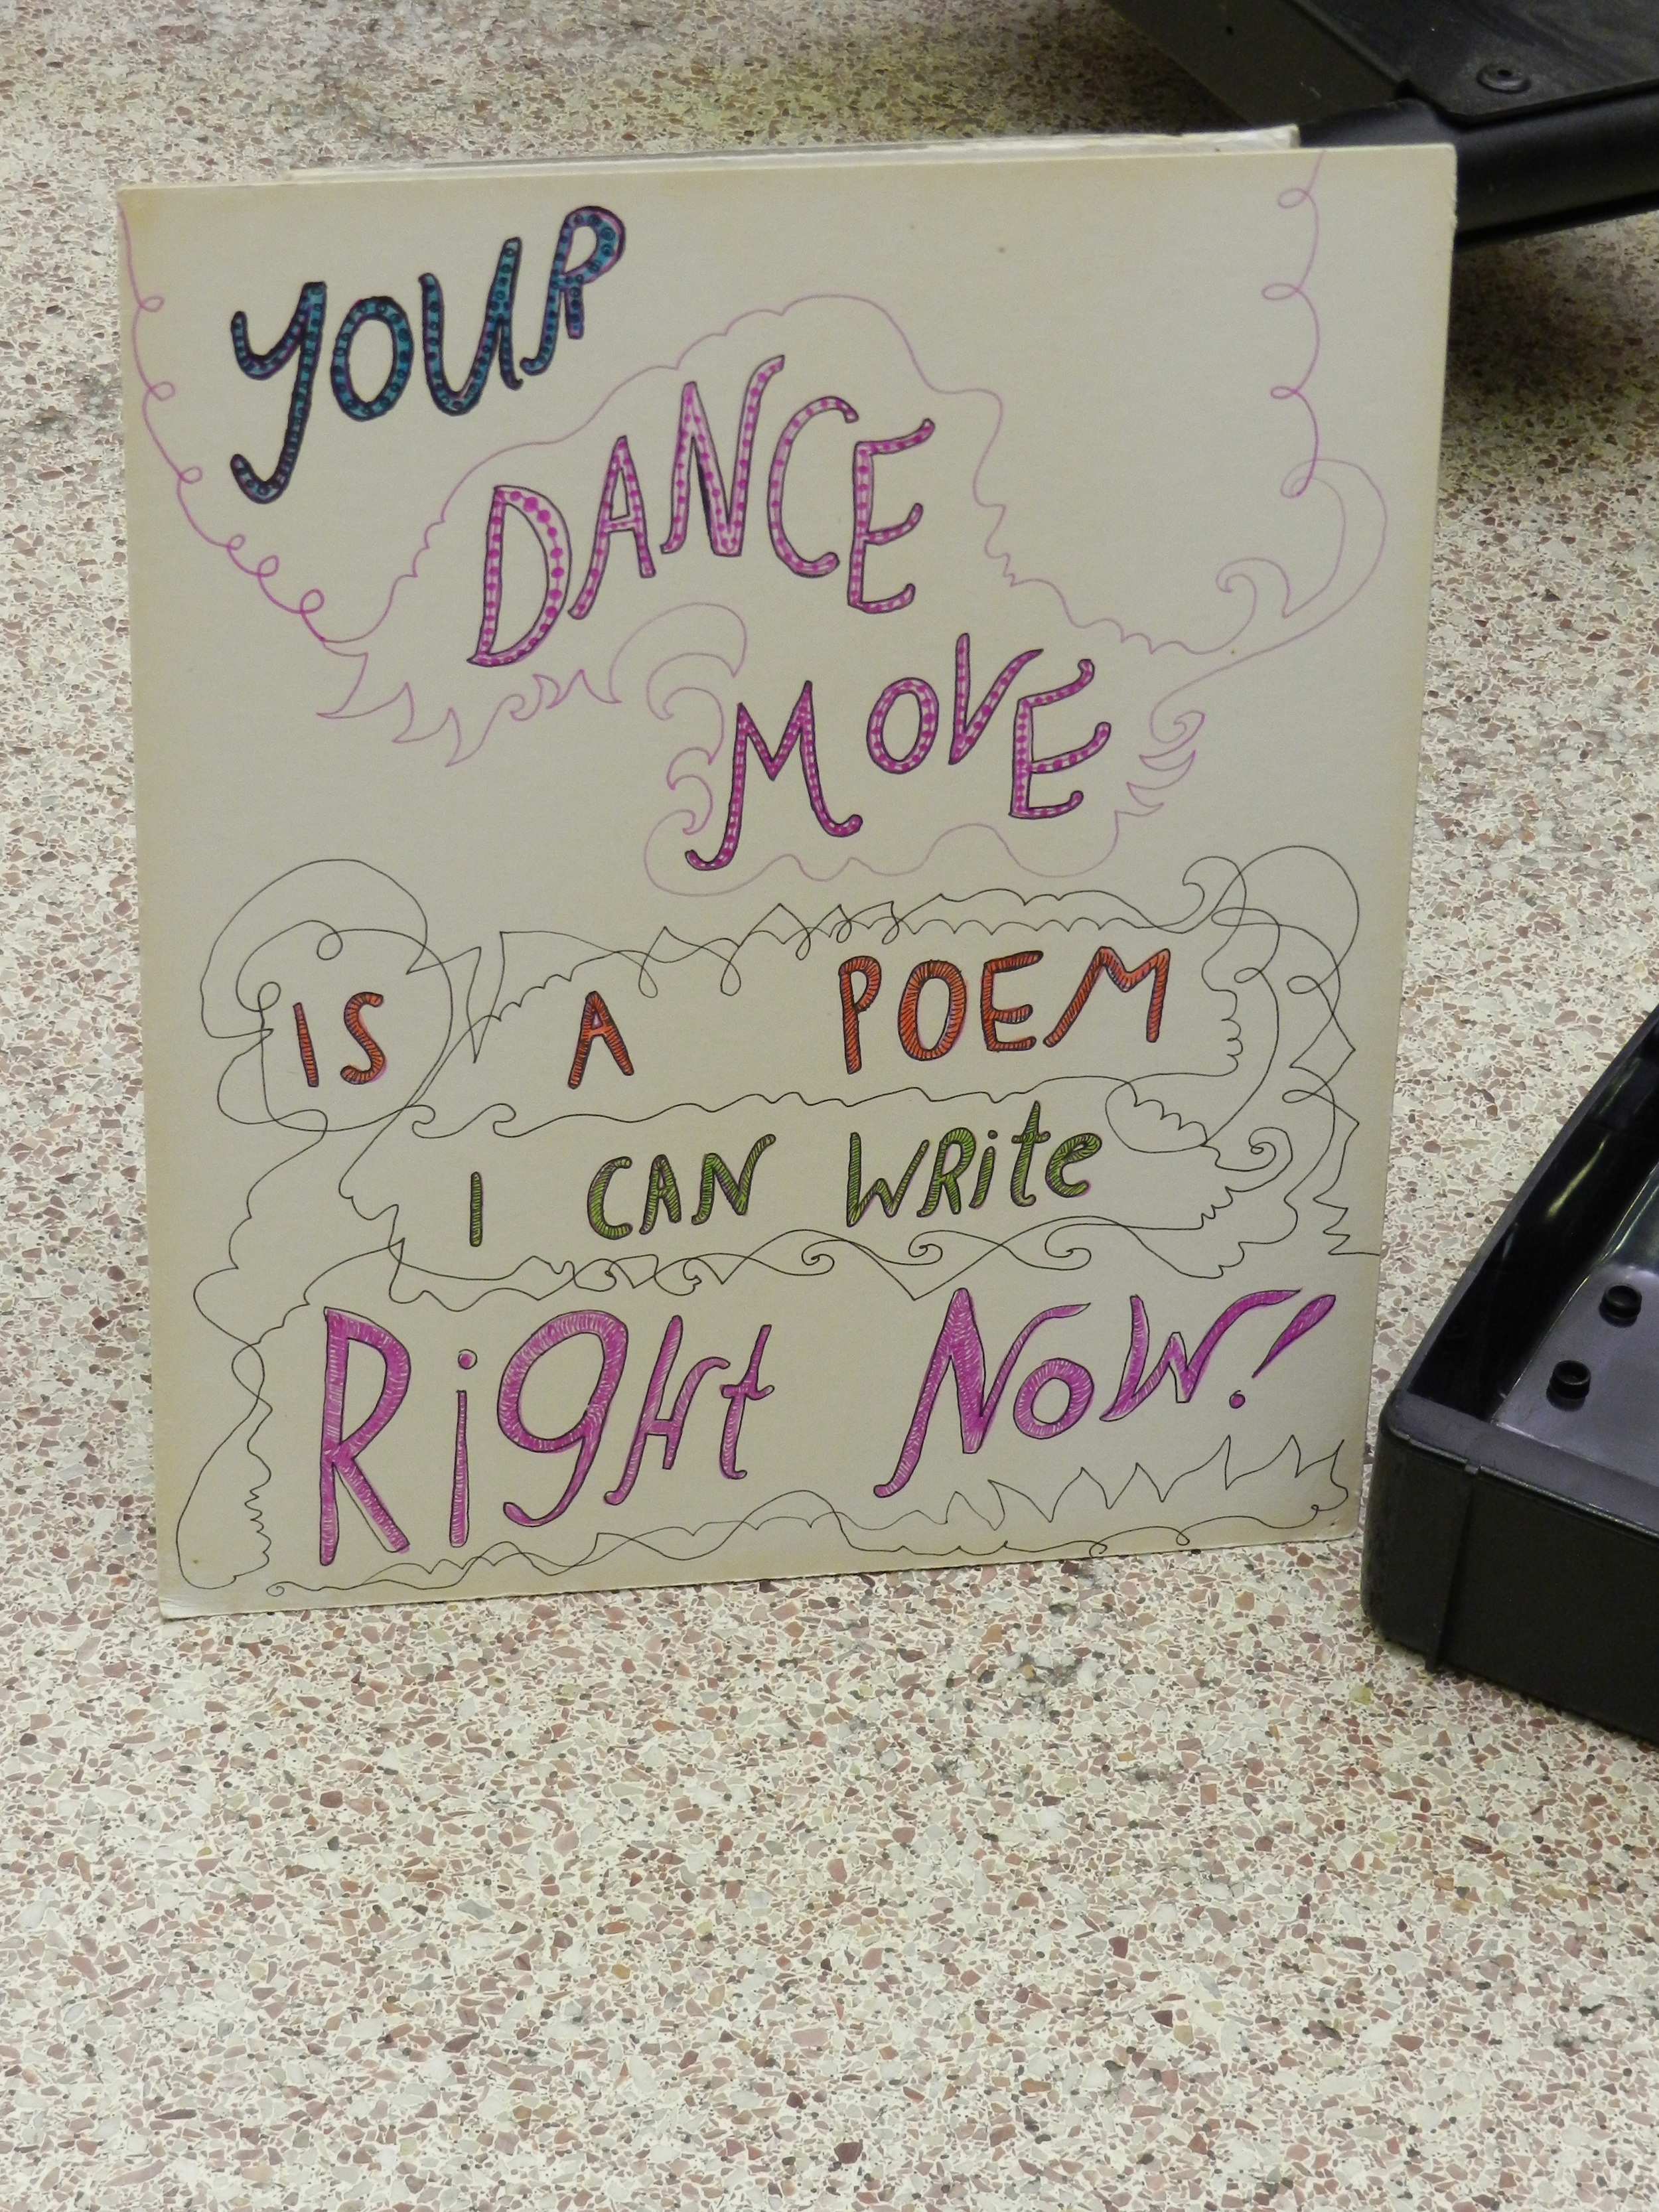 YOUR
DANCE
MOVE
IS A POEM
I CAN WRite
RigHt NoW!